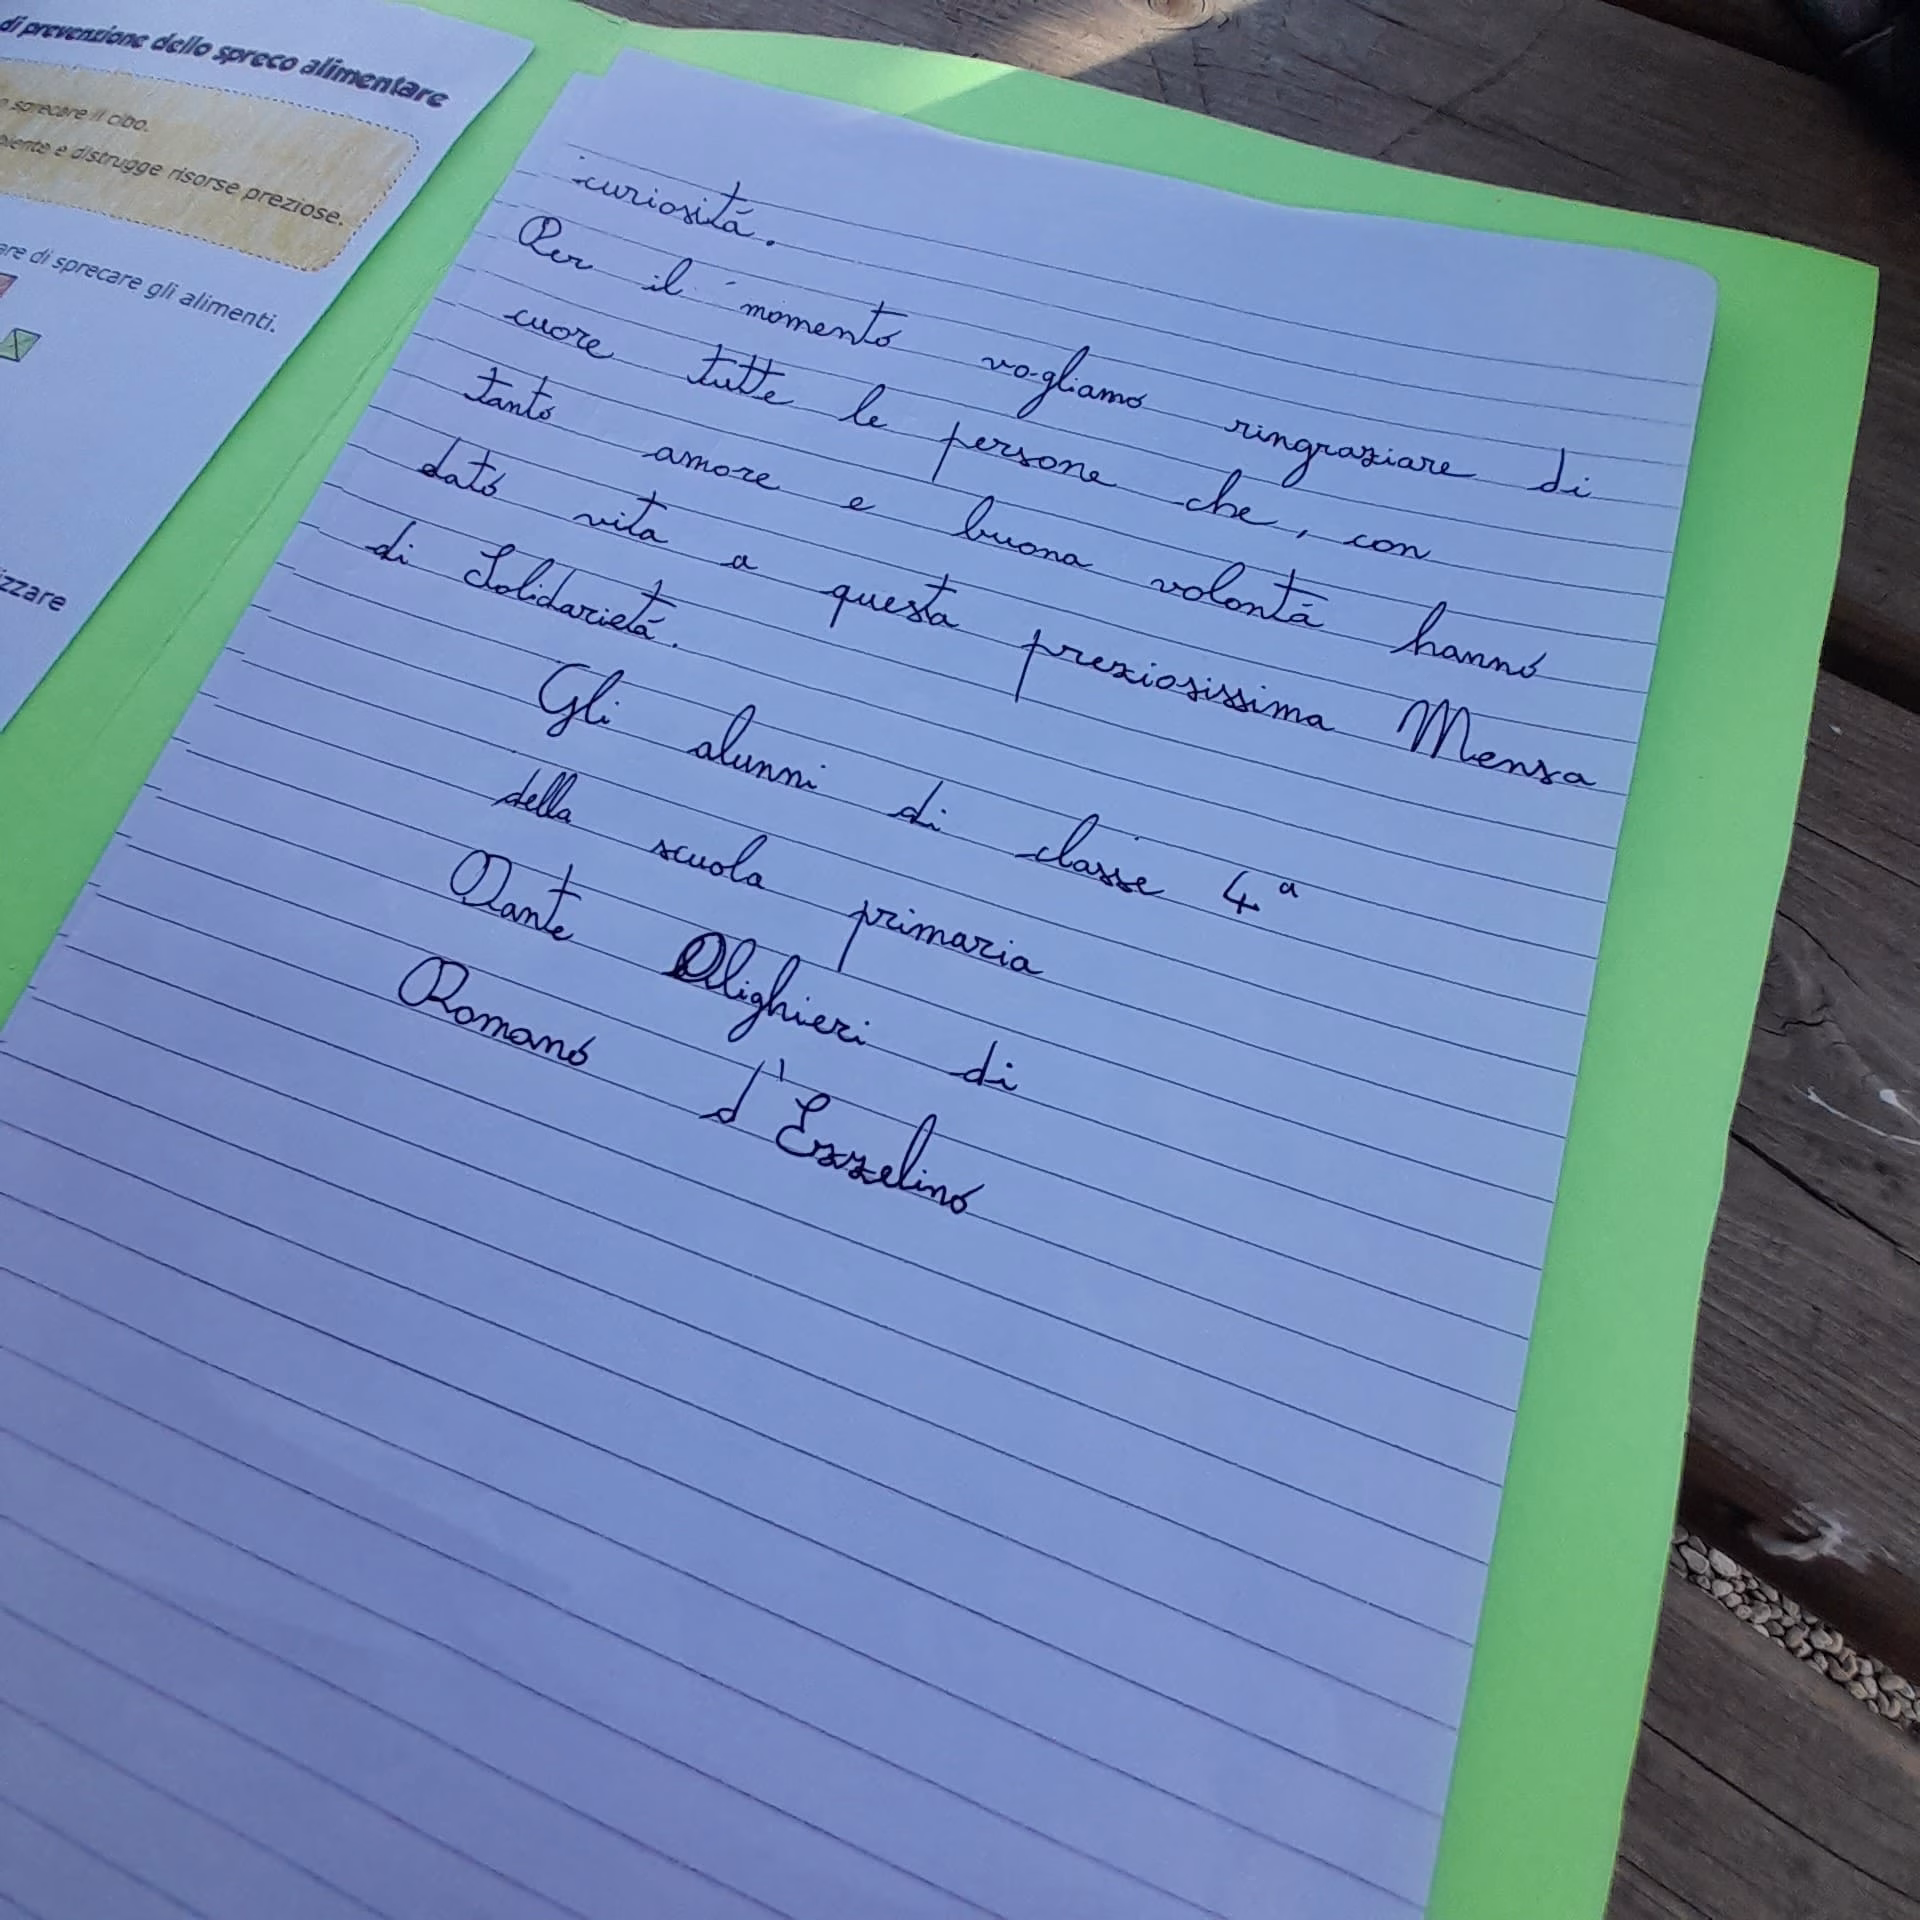 di prevenzione dello spreco alimentare
sprecare il cibo.
e distrugge risorse preziose.
di sprecare gli alimenti.
curiositá.
Per il momento vogliamo ringraziare di
cuore tutte le persone che, con
tanto amore e buona volontá hanno
dato vita a questa preziosissima Mensa
di Solidarietá.
Gli alunni di classe 4ª
della scuola primaria
Dante Alighieri di
Romano d'Ezzelino